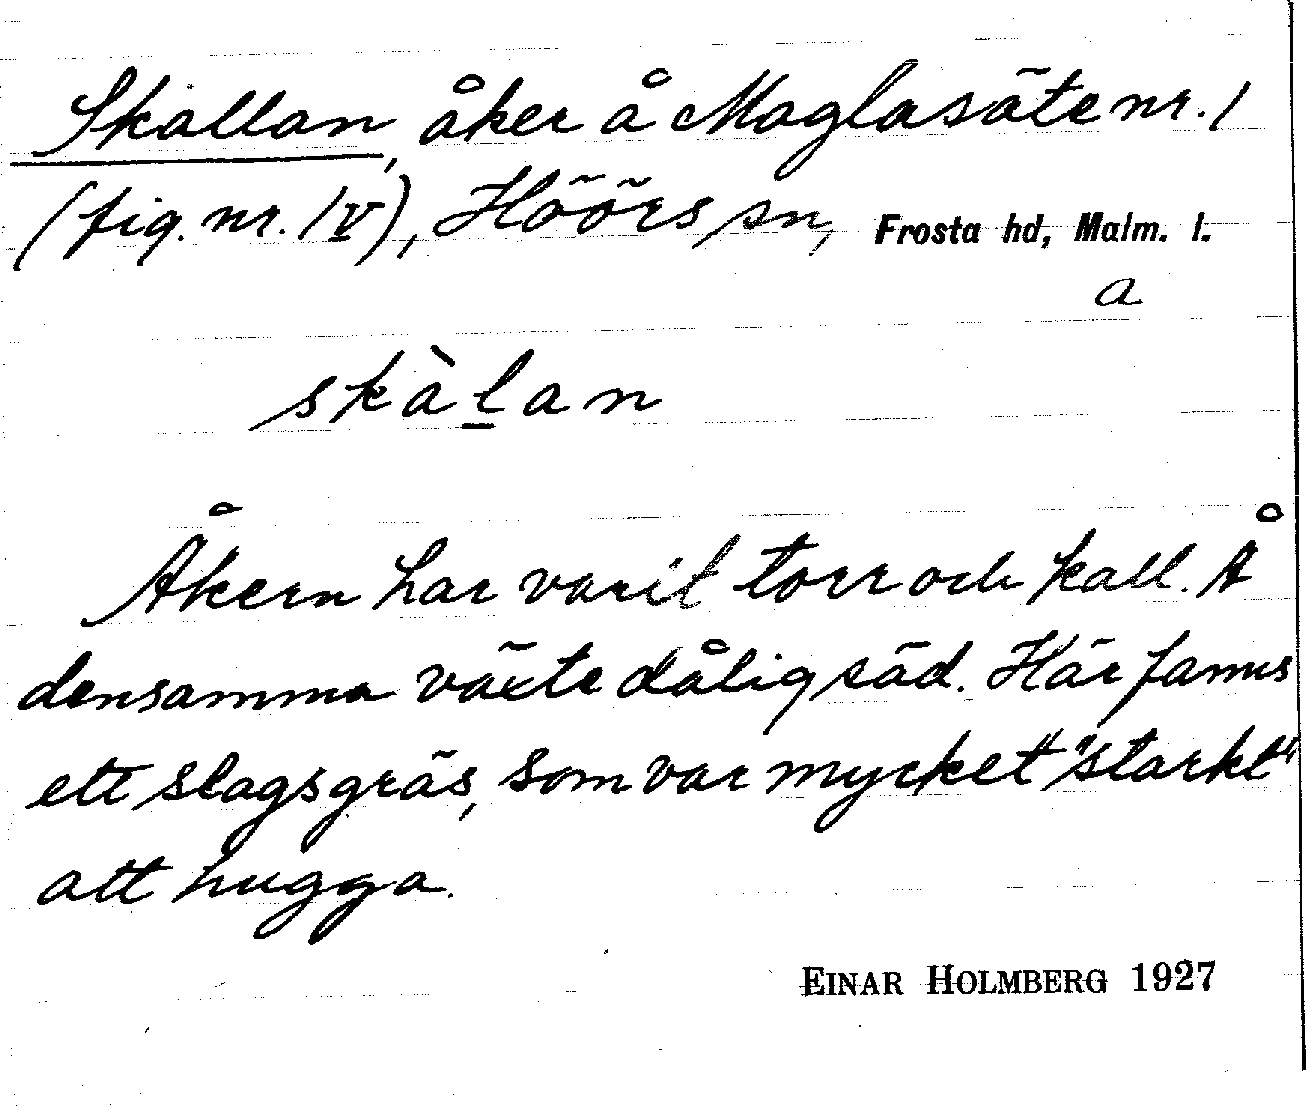 Skallan, åker å Maglasäte nr. 1
(fig. nr. IV), Höörs sn, Frosta hd, Malm. l.
a
skàl̲an
Åkern har varit torr och kall. Å
densamma växte dålig säd. Här fanns
ett slags gräs, som var mycket "starkt"
att hugga.
EINAR HOLMBERG 1927